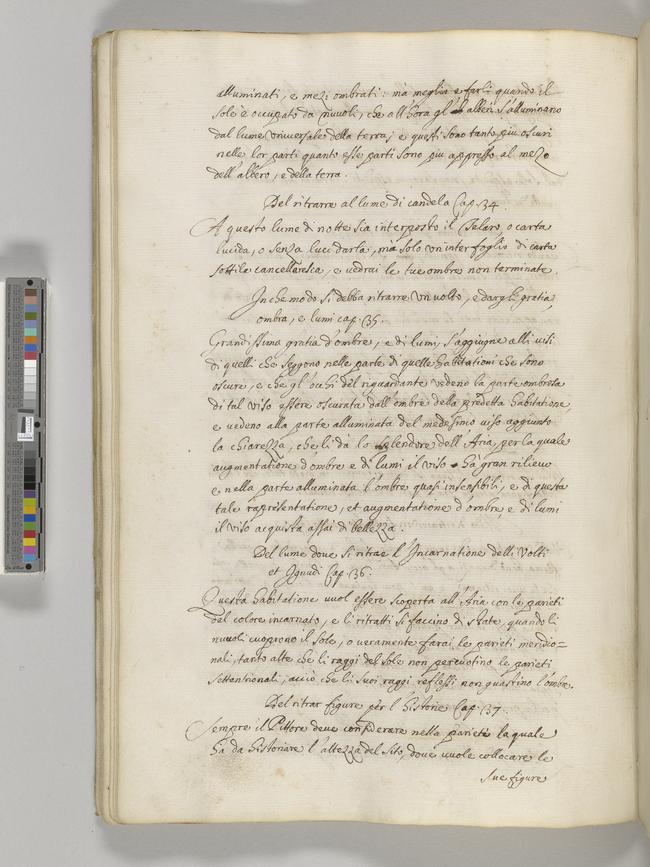 alluminati, e mezi ombrati: mà meglio è farli quando il
sole è occupato da nuvoli, che all'hora gl' alberi s'alluminano
dal lume universale della terra, e questi sono tanto più oscuri
nelle lor parti quanto esse parti sono più appresso al mezo
dell'albero, e della terra.
Del ritrarre al lume di candela Cap. 34.
A questo lume di notte sia interposto il Telaro, o carta
lucida, o senza lucidarla, mà solo un interfoglio di carta
sottile cancellaresca, e vedrai le tue ombre non terminate.
In che modo si debba ritrarre un volto, e dargli gratia,
ombra, e lumi cap. 35.
Grandissima gratia d'ombre, e di lumi, s'aggiugne alli visi
di quelli che seggono nelle parte di quelle habitationi che sono
oscure, e che gl'occhi del riguardante vedeno la parte ombrosa
di tal viso essere oscurata dall'ombre della predetta habitatione,
e vedeno alla parte alluminata del medesimo viso aggiunto
la chiarezza, che li da lo splendore dell'Aria, per la quale
augmentatione d'ombre e di lumi il viso ha gran rilievo
e nella parte alluminata l'ombre quasi insensibili, e di questa
tale rapresentatione, et augmentatione d'ombre, e di lumi
il viso acquista assai di bellezza.
Del lume dove si ritrae l'Incarnatione delli Volti
et Ignudi Cap. 36.
Questa habitatione vuol essere scoperta all'Aria con le parieti
del colore incarnato, e li ritratti si faccino di state, quando li
nuvoli cuoprono il sole, o veramente farai le parieti meridio=
nali, tanto alte che li raggi del sole non percuotino le parieti
settentrionali, acciò che li suoi raggi reflessi non guastino l'ombre.
Del ritrar figure per l'historie Cap. 37.
Sempre il Pittore deve considerare nella pariete la quale
hà da historiare l'altezza del sito, dove vuole collocare le
sue figure